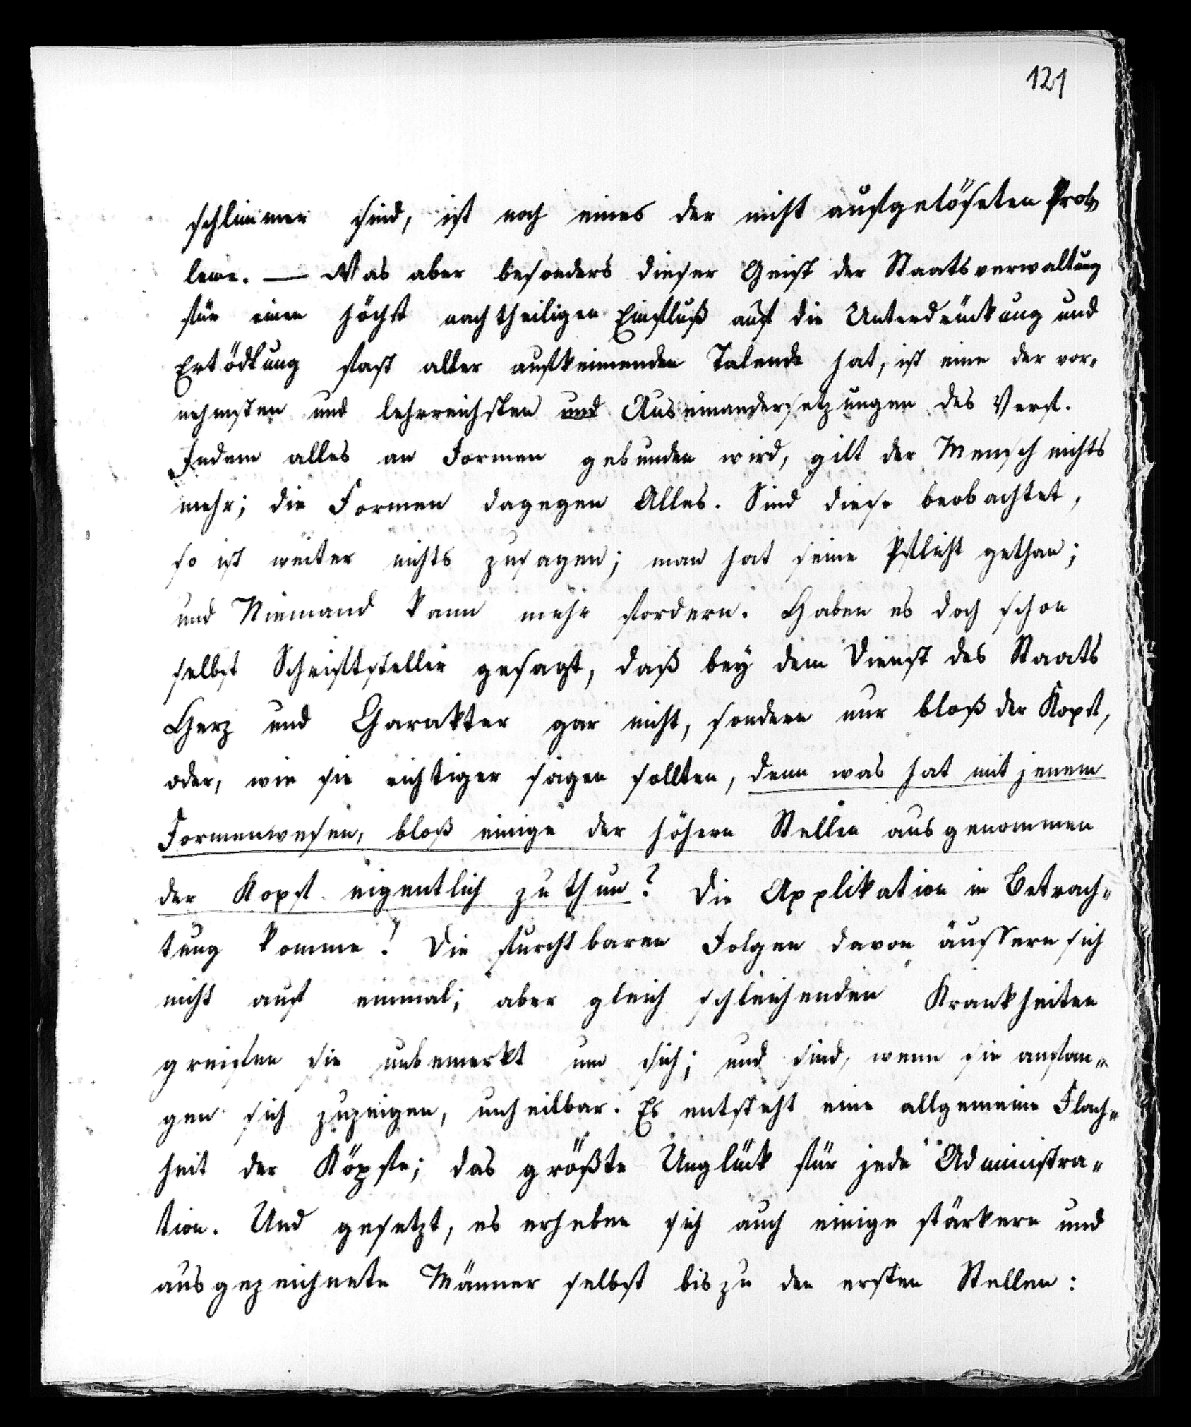 121
schlimmer sind, ist noch eines der nicht aufgelöseten Prob
leme. — Was aber besonders dieser Geist der Staatsverwaltung
für einen höchst nachtheiligen Einfluß auf die Unterdrückung und
Ertödtung fast aller aufkeimenden Talende hat, ist eine der vor-
nehmsten und lehrreichsten und Auseinandersetzungen des Verf.
Indem alles an Formen gebunden wird, gilt der Mensch nichts
mehr; die Formen dagegen Alles. Sind diese beobachtet,
so ist weiter nichts zusagen; man hat seine Pflicht gethan;
und Niemand kann mehr fordern. Haben es doch schon
selbst Schriftsteller gesagt, daß bey dem Dienst des Staats
Herz und Charakter gar nicht, sondern nur bloß der Kopf,
oder, wie sie richtiger sagen sollten, denn was hat mit jenem
Formenwesen, bloß einige der höhern Stellen ausgenommen
der Kopf eigentlich zu thun? die Applikation in Betrach-
tung komme! Die furchtbaren Folgen davon äussern sich
nicht auf einmal; aber gleich schleichenden Krankheiten
greifen sie unbemerkt um sich; und sind, wenn sie anfan-
gen sich zuzeigen, unheilbar. Es entsteht eine allgemeine Flach-
heit der Köpfe; das größte Unglück für jede Administra-
tion. Und gesetzt, es erheben sich auch einige stärkere und
ausgezeichnete Männer selbst bis zu den ersten Stellen: